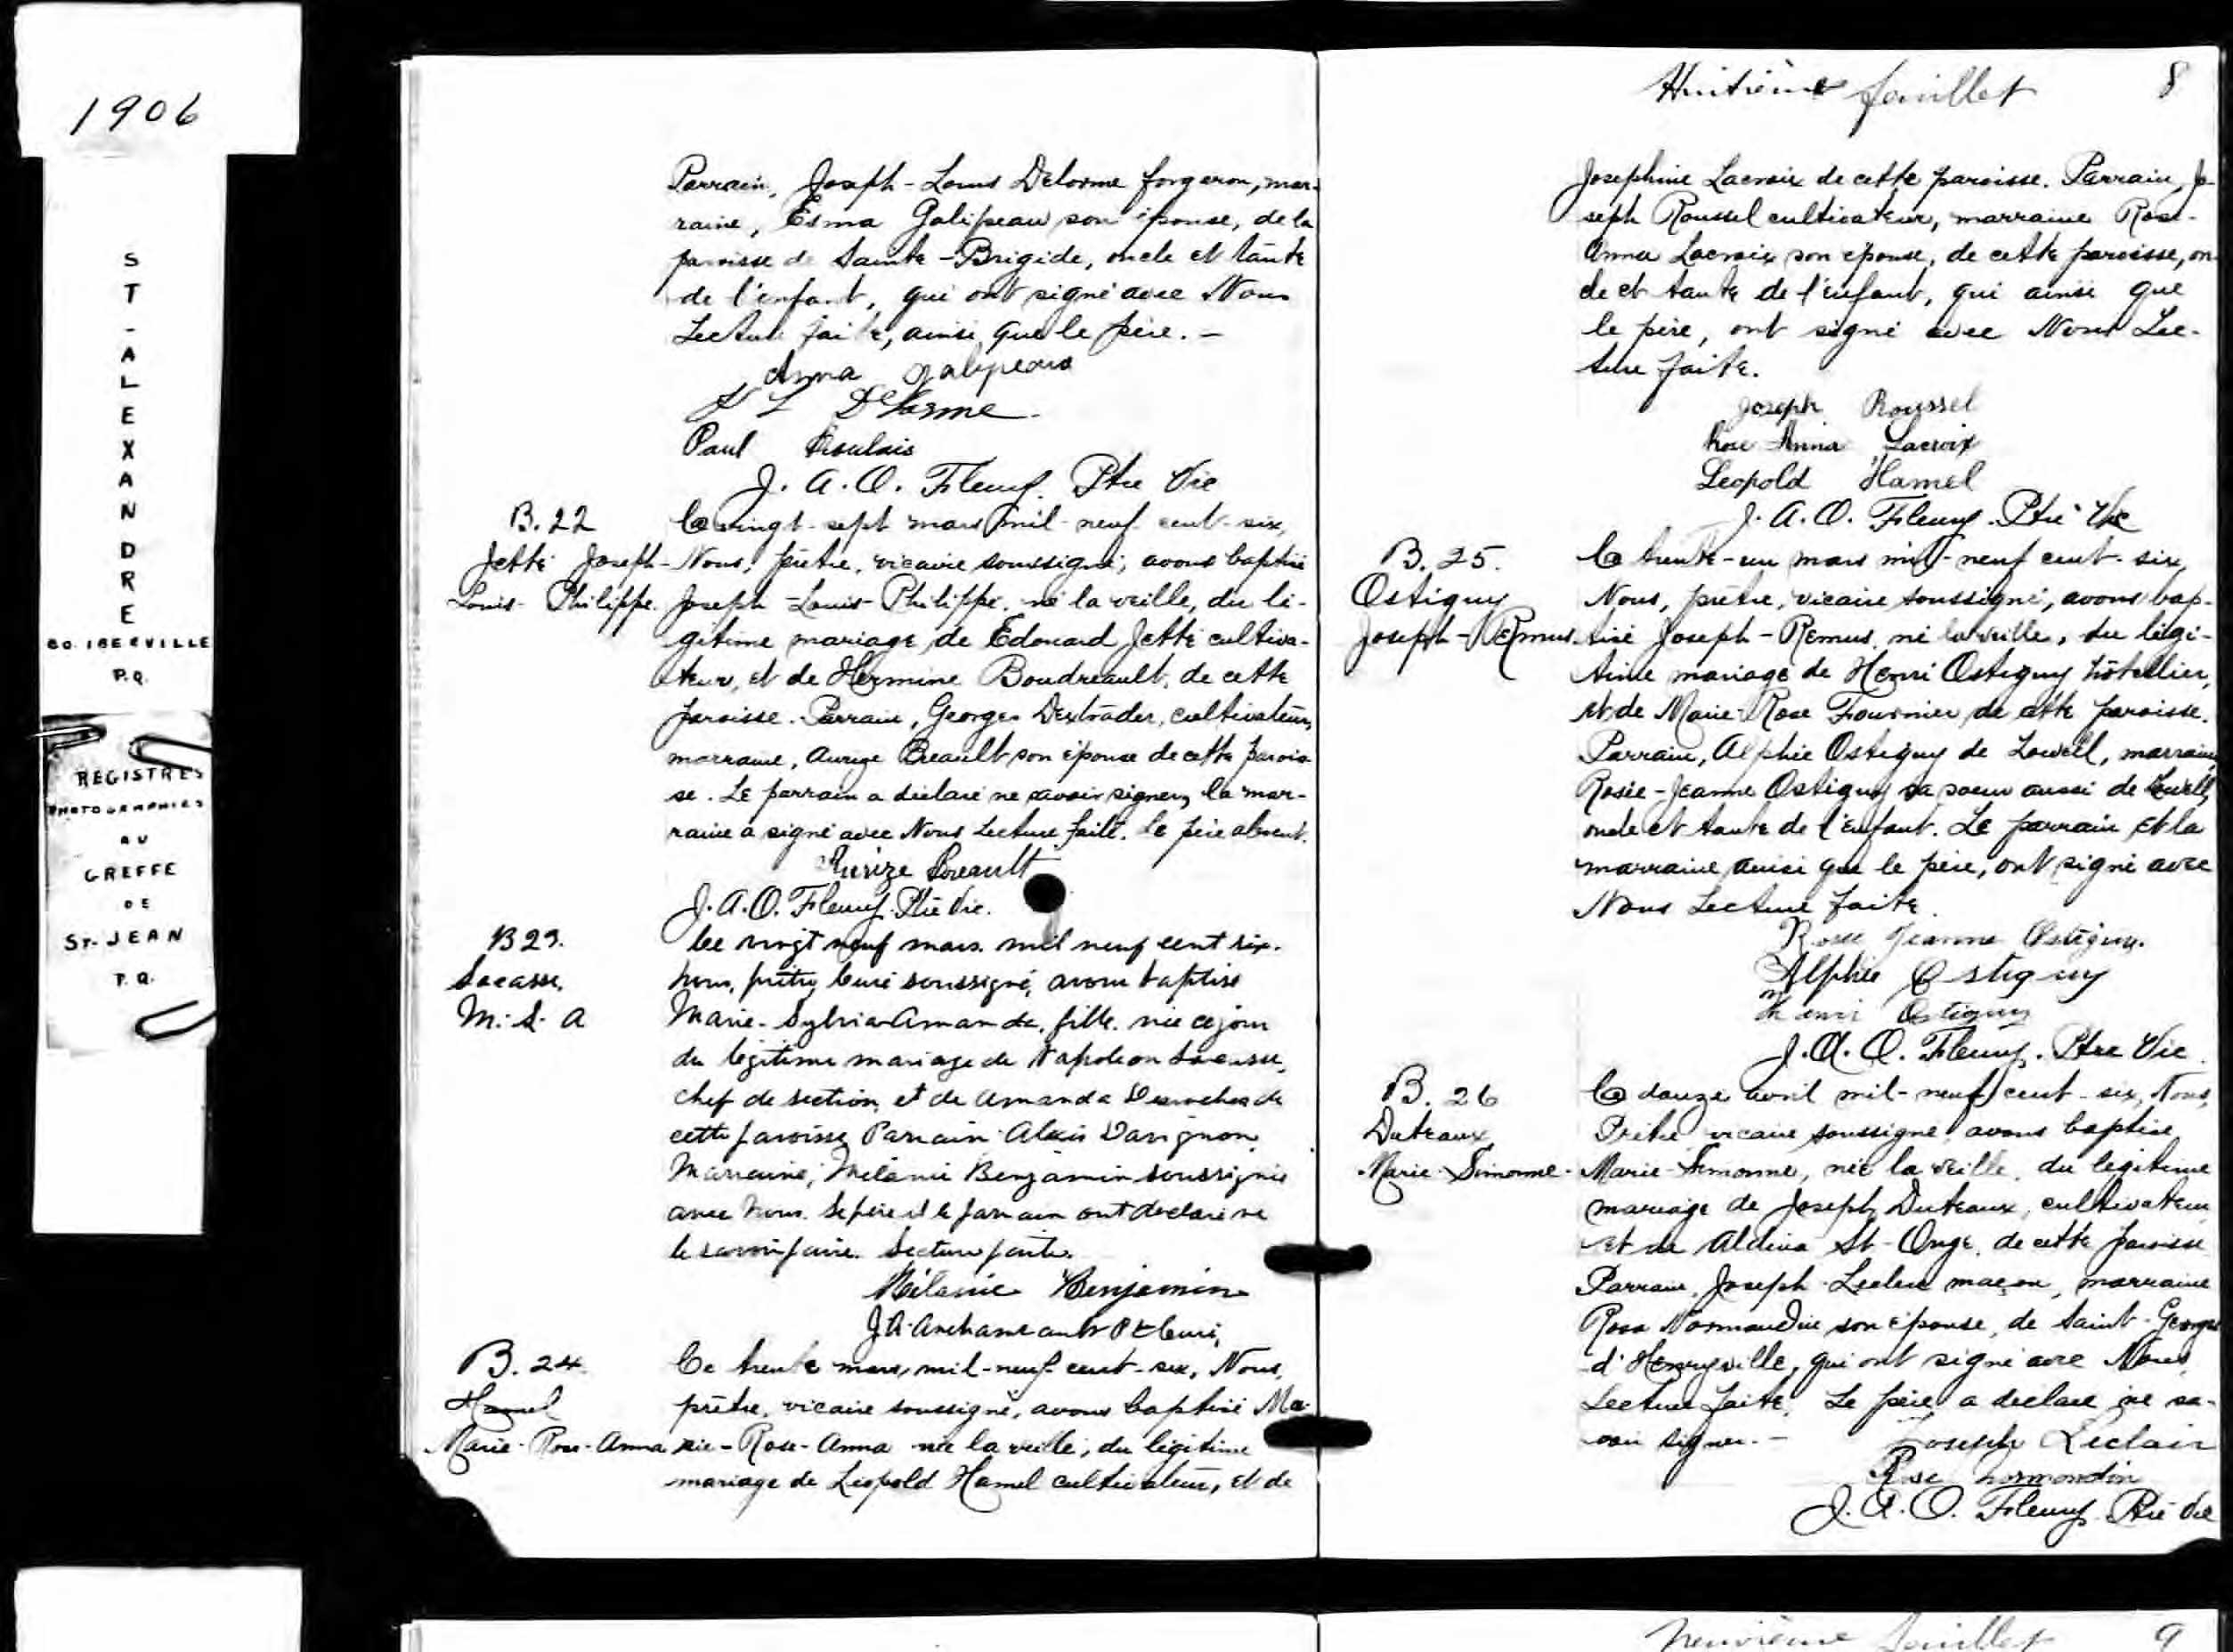 1906
ST-ALEXANDRE
CO. IBERVILLE
P.Q.
REGISTRES
PHOTOGRAPHIES
AU
GREFFE
DE
ST-JEAN
P.Q.
Parrain, Joseph-Louis Delorme forgeron, mar-
raine, Esma Galipeau son épouse, de la
paroisse de Sainte-Brigide, oncle et tante
de l'enfant, qui ont signé avec Nous
Lecture faite, ainsi que le père. -
Asma Galipeau
J L Delorme
Paul
J. A. O. Fleury. Ptre Vic
B. 22
Jetté Joseph-
Louis-Philippe.
Ce vingt-sept mars mil-neuf-cent-six,
Nous, prêtre, vicaire soussigné, avons baptisé
Joseph-Louis-Philippe, né la veille, du lé-
gitime mariage de Edouard Jetté cultiva-
teur, et de Hermine Boudreault, de cette
paroisse. Parrain, Georges Dextrader, cultivateur,
marraine, Aurize Breault son épouse de cette parois-
se. Le parrain a déclaré ne savoir signer, la mar-
raine a signé avec Nous Lecture faite. Le père absent.
Aurize Breault
J. A. O. Fleury. Ptre Vic.
B 23.
Lacasse,
M. S. A
Ce vingt neuf mars mil neuf cent six.
nous, prêtre, curé soussigné, avons baptisé
Marie-Sylvia-Amanda, fille, née ce jour
du légitime mariage de Napoleon Lacasse,
chef de section, et de Amanda Desroches de
cette paroisse, Parrain Alexis Davignon,
Marraine, Mélanie Benjamin soussignée
avec nous. Le père et le parrain ont déclaré ne
le savoir faire. Lecture faite.
Mélanie Benjamin
J A. Archambault Pt Curé,
B. 24
Hamel
Marie-Rose-Anna
Ce trente mars, mil-neuf-cent-six, Nous,
prêtre, vicaire soussigné, avons baptisé Ma-
rie-Rose-Anna née la veille, du légitime
mariage de Léopold Hamel cultivateur, et de
Huitième feuillet 8
Josephine Lacroix de cette paroisse. Parrain, Jo-
seph Roussel cultivateur, marraine Rose-
Anna Lacroix son épouse, de cette paroisse, on-
cle et tante de l'enfant, qui ainsi que
le père, ont signé avec Nous Lec-
ture faite.
Joseph Roussel
Rose Anna Lacroix
Leopold Hamel
J. A. O. Fleury. Ptre Vic
B. 25.
Ostiguy
Joseph-Remus.
Ce trente-un mars mil-neuf cent-six,
Nous, prêtre, vicaire soussigné, avons bap-
tisé Joseph-Remus, né la veille, du légi-
time mariage de Henri Ostiguy hôtellier,
et de Marie-Rose Fournier de cette paroisse.
Parrain, Alphée Ostiguy de Lowell, marraine,
Rosée-Jeanne Ostiguy sa soeur aussi de Lowell,
oncle et tante de l'enfant. Le parrain et la
marraine ainsi que le père, ont signé avec
Nous Lecture faite.
Rosée Jeanne Ostiguy.
Alphée Ostiguy
Henri Ostiguy
J. A. O. Fleury. Ptre Vic.
B. 26
Duteaux
Marie-Simonne-
Ce douze avril mil-neuf-cent-six, Nous,
Prêtre vicaire soussigné, avons baptisé
Marie-Simonne, née la veille, du légitime
mariage de Joseph Duteaux, cultivateur
et de Aldina St-Onge, de cette paroisse
Parrain, Joseph Leclerc maçon, marraine
Rosa Normandin son épouse, de Saint-Georges
d'Henryville, qui ont signé avec Nous,
Lecture faite. Le père a déclaré ne sa-
voir signer. -
Joseph Leclair
Rose Normandin
J. A. O. Fleury. Ptre Vic
neuvième feuillet 9